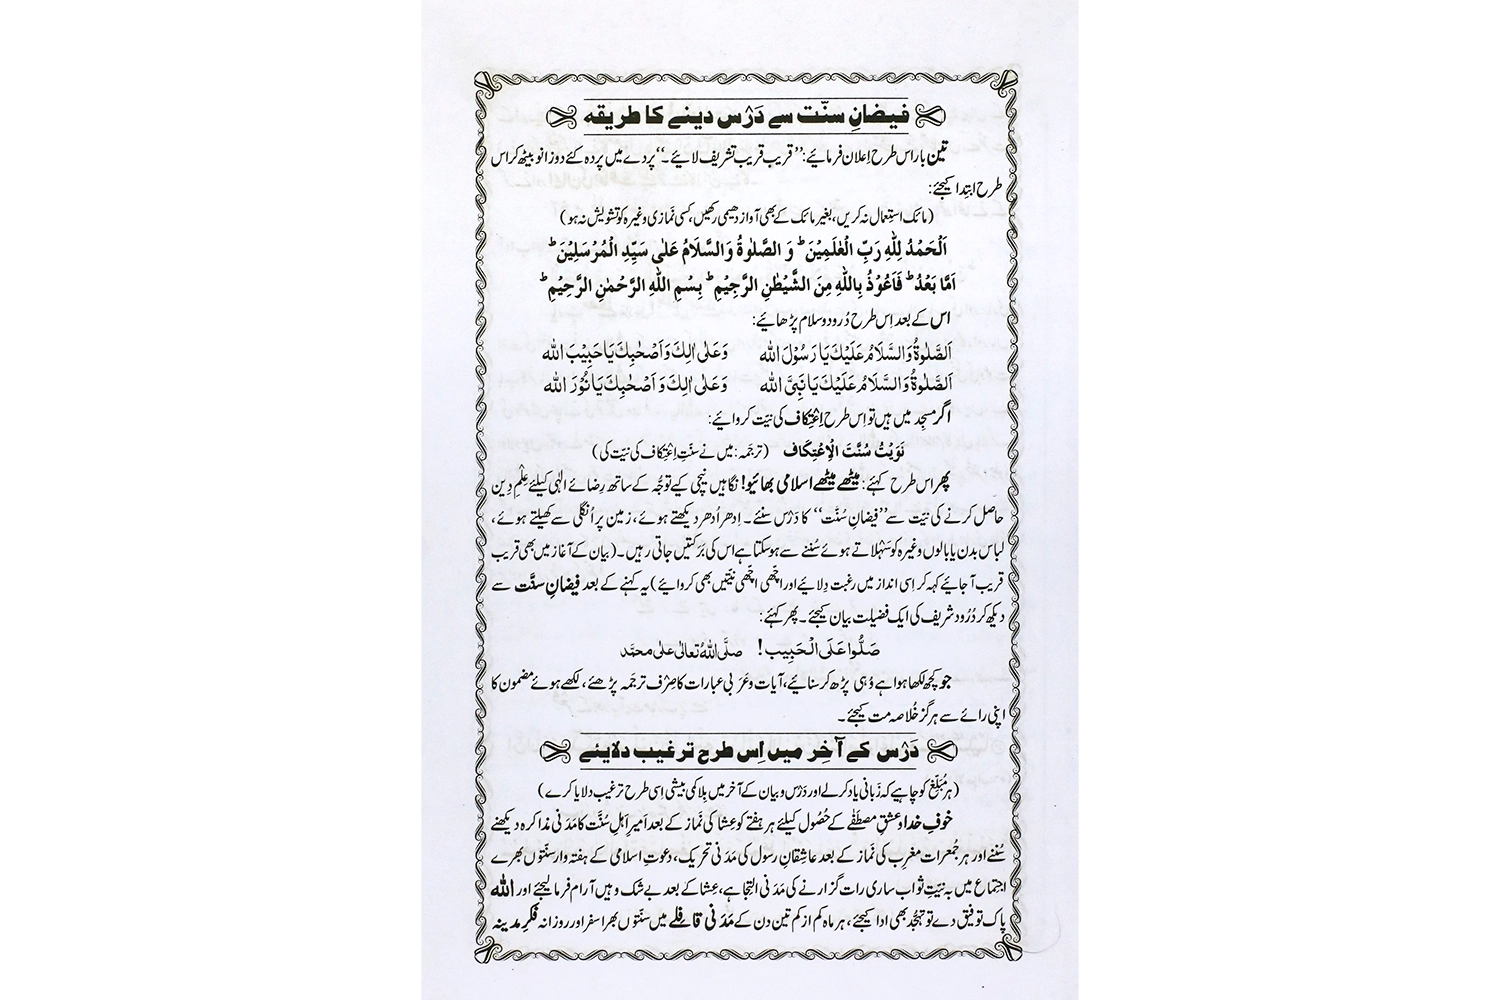 فیضانِ سنّت سے دَرْس دینے کا طریقہ
تین بار اس طرح اِعلان فرمائیے: ’’قریب قریب تشریف لائیے۔‘‘ پردے میں پردہ کئے دوزانو بیٹھ کر اس
طرح ابتدا کیجئے:
(مائک استعمال نہ کریں، بغیر مائک کے بھی آواز دھیمی رکھیں، کسی نَمازی وغیرہ کو تشویش نہ ہو)
اَلْحَمْدُ لِلّٰهِ رَبِّ الْعٰلَمِيْنَ ؕ وَ الصَّلٰوةُ وَالسَّلَامُ عَلٰى سَيِّدِ الْمُرْسَلِيْنَ ؕ
اَمَّا بَعْدُ ؕ فَاَعُوْذُ بِاللّٰهِ مِنَ الشَّيْطٰنِ الرَّجِيْمِ ؕ بِسْمِ اللّٰهِ الرَّحْمٰنِ الرَّحِيْمِ ؕ
اس کے بعد اِس طرح دُرود و سلام پڑھائیے:
اَلصَّلٰوةُ وَالسَّلَامُ عَلَيْكَ يَا رَسُوْلَ اللّٰه وَعَلٰى اٰلِكَ وَاَصْحٰبِكَ يَا حَبِيْبَ اللّٰه
اَلصَّلٰوةُ وَالسَّلَامُ عَلَيْكَ يَا نَبِىَّ اللّٰه وَعَلٰى اٰلِكَ وَاَصْحٰبِكَ يَا نُوْرَ اللّٰه
اگر مسجِد میں ہیں تو اِس طرح اِعْتِکاف کی نیّت کروائیے:
نَوَيْتُ سُنَّتَ الْاِعْتِكَاف (ترجَمہ: میں نے سنّتِ اِعْتِکاف کی نیّت کی)
پھر اس طرح کہئے: میٹھے میٹھے اسلامی بھائیو! نگاہیں نیچی کیے توجُّہ کے ساتھ رِضائے الٰہی کیلئے عِلْمِ دِین
حاصل کرنے کی نیّت سے ’’فیضانِ سُنّت‘‘ کا دَرْس سنئے۔ اِدھر اُدھر دیکھتے ہوئے، زمین پر اُنگلی سے کھیلتے ہوئے،
لباس بدن یا بالوں وغیرہ کو سَہْلاتے ہوئے سُننے سے ہوسکتا ہے اس کی بَرَکتیں جاتی رہیں۔ (بیان کے آغاز میں بھی قریب
قریب آ جائیے کہہ کر اِسی انداز میں رغبت دِلائیے اور اچّھی اچّھی نیّتیں بھی کروائیے) یہ کہنے کے بعد فیضانِ سنَّت سے
دیکھ کر دُرُود شریف کی ایک فضیلت بیان کیجئے۔ پھر کہئے:
صَلُّوا عَلَى الْحَبِيب! صلَّى اللهُ تعالٰى على محمَّد
جو کچھ لکھا ہوا ہے وُہی پڑھ کر سنائیے، آیات و عَرَبی عبارات کا صِرْف ترجَمہ پڑھئے، لکھے ہوئے مضمون کا
اپنی رائے سے ہرگز خُلاصہ مت کیجئے۔
دَرْس کے آخِر میں اِس طرح ترغیب دلائیے
(ہر مُبلِّغ کو چاہیے کہ زَبانی یاد کرلے اور دَرْس و بیان کے آخر میں بِلا کمی بیشی اِسی طرح ترغیب دلایا کرے)
خوفِ خدا و عشقِ مصطَفٰے کے حُصُول کیلئے ہر ہفتے کو عِشا کی نَماز کے بعد امیرِ اَہلِ سُنَّت کا مَدَنی مذاکرہ دیکھنے
سُننے اور ہر جُمعرات مغرِب کی نَماز کے بعد عاشقانِ رسول کی مَدَنی تحریک، دعوتِ اسلامی کے ہفتہ وار سنّتوں بھرے
اجتِماع میں بہ نیّتِ ثواب ساری رات گزارنے کی مَدَنی التِجا ہے، عِشا کے بعد بے شک وہیں آرام فرما لیجئے اور اللّٰه
پاک توفیق دے تو تہجُّد بھی ادا کیجئے، ہر ماہ کم از کم تین دن کے مَدَنی قافلے میں سنّتوں بھرا سفر اور روزانہ فکرِ مدینہ